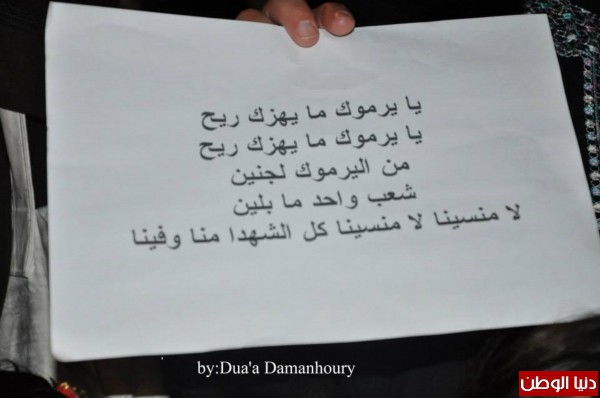 يا يرموك ما يهزك ريح
يا يرموك ما يهزك ريح
من اليرموك لجنين
شعب واحد ما بلين
لا منسينا لا منسينا كل الشهدا منا وفينا
by:Dua'a Damanhoury
دنيا الوطن